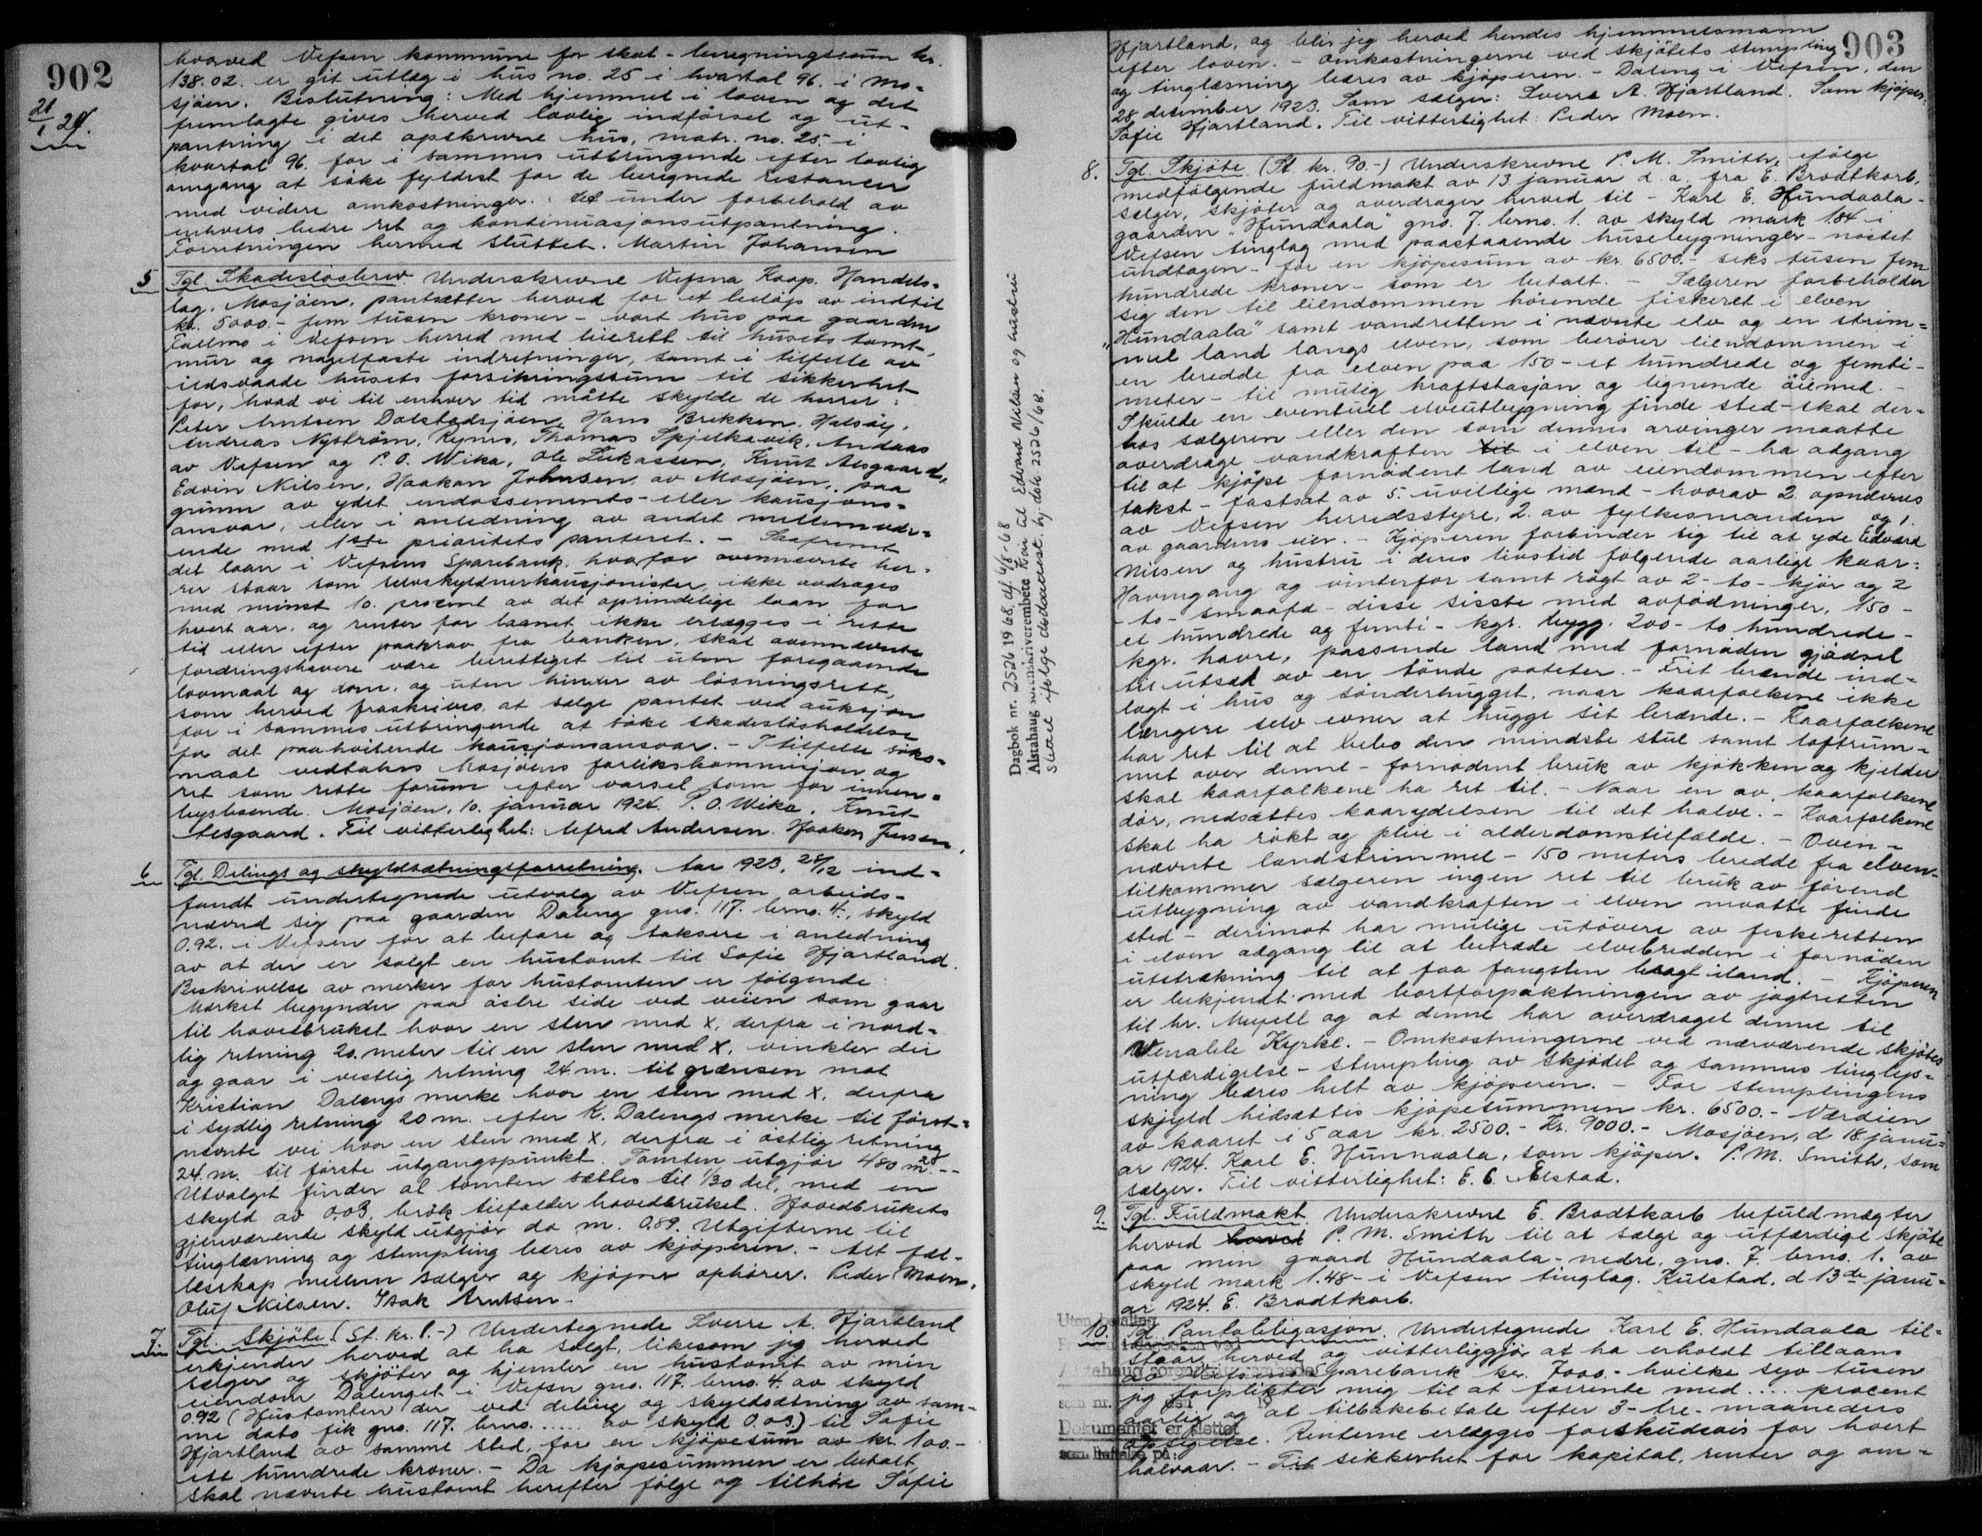 902
21/1 24.
hvorved Vefsen kommune for skat - beregningssum kr.
138.02. er git utlæg i hus no. 25 i kvartal 96. i Mo-
sjøen. Beslutning: Med hjemmel i loven og det
fremlagte gives herved lovlig indførsel og ut-
pantning i det opskrevne hus, matr. no. 25. i
kvartal 96. for i sammes utbringende efter lovlig
omgang at søke fyldest for de beregnede restancer
med videre omkostninger. Alt under forbehold av
enhvers bedre ret og kontinuasjonsutpantning.
Forretningen hermed sluttet. Martin Johansen
5 Tgl. Skadesløsbrev Underskrevne Vefsna Koop. Handels-
lag, Mosjøen, pantsætter herved for et beløp av indtil
kr. 5000.- fem tusen kroner - vort hus paa gaarden
i Vefsen herred med leierett til husets tomt,
mur og nagelfaste indretninger, samt i tilfelle av
ildsvaade husets forsikringssum til sikkerhet
for, hvad vi til enhver tid måtte skylde de herrer:
Peter Arntsen Dolstadsjøen, Hans Brekken, Halsøy,
Andreas Nyström, Rynes, Thomas Spjelkavik, Andaas
av Vefsen og P. O. Wika, Ole Lukassen, Knut Aasgaard,
Edvin Nilsen, Haakon Johnsen, av Mosjøen, paa
grunn av ydet endossements- eller kausjons-
ansvar, eller i anledning av andet mellemvær-
ende med 1ste prioritets panteret. - Saafremt
det laan i Vefsens Sparebank, hvorfor ovennævnte her-
rer staar som selvskyldnerkausjonister, ikke avdrages
med minst 10. procent av det oprindelige laan for
hvert aar, og renter for laanet ikke erlægges i rette
tid eller efter paakrav fra banken, skal ovennævnte
fordringshavere være berettiget til uten foregaaende
lovmaal og dom, og uten hinder av løsningsrett,
som herved fraskrives, at sælge pantet ved auksjon
for i sammes utbringende at søke skadesløsholdelse
for det paahvilende kausjonsansvar. - I tilfelle søks-
maal vedtakes Mosjøens forlikskommisjon og
ret som rette forum efter varsel som for innen-
bysboende. Mosjøen, 10. januar 1924. P. O. Wika. Knut
Aasgaard. Til vitterlighet: Alfred Andersen. Haakon Jensen.
6 Tgl. Delings og skyldsætningsforretning. Aar 1923, 28/12 ind-
fandt undertegnede utvalg av Vefsen arbeids-
nævnd sig paa gaarden Daleng gno. 117. brno. 4., skyld
0.92. i Vefsen for at befare og taksere i anledning
av at der er solgt en hustomt til Sofie Hjartland.
Beskrivelse av merker for hustomten er følgende
Merket begynder paa østre side ved veien som gaar
til hovedbruket hvor en sten med X, derfra i nord-
lig retning 20. meter til en sten med X, vinkler der
og gaar i vestlig retning 24 m. til grænsen mot
Kristian Dalengs merke hvor en sten med X, derfra
i sydlig retning 20 m. efter K. Dalengs merke til først-
nevnte vei hvor en sten med X, derfra i østlig retning
24 m. til første utgangspunkt. Tomten utgjør 480 m².--
Utvalget finder at tomten sættes til 1/30 del, med en
skyld av 0.03. brøk tilfalder hovedbruket. Hovedbrukets
gjenværende skyld utgjør da m. 0.89. Utgifterne til
tinglæsning og stempling bæres av kjøperen. - Alt fæl-
lesskap mellem sælger og kjøper ophører. Peder Moen.
Oluf Nilsen. Isak Arntsen.
7. Tgl. Skjøte (St. kr. 1.-) Undertegnede Sverre A. Hjartland
erkjender herved at ha solgt, likesom jeg herved
sælger og skjøter og hjemler en hustomt av min
eiendom Dalenget i Vefsn gno. 117. brno. 4. av skyld
0.92 (Hustomten der ved deling og skyldsætning av sam-
me dato fik gno. 117. brno. ..... av skyld 0.03.) til Sofie
Hjartland av samme sted, for en kjøpesum av kr. 100.-
ett hundrede kroner. - Da kjøpesummen er betalt
skal nævnte hustomt herefter følge og tilhøre Sofie
Dagbok nr. 2526 1968, af 4/6-68
Alstahaug sorenskriverembete Kår til Edvard Nilsen og hustru
slettet ifølge dødsattest, hj. dok. 2526/68.
903
Hjartland, og blir jeg herved hendes hjemmelsmann
efter loven. - Omkostningerne ved skjøtets stempling
og tinglæsning bæres av kjøperen. - Daleng i Vefsen, den
28 december 1923. Som sælger: Sverre A. Hjartland. Som kjøper:
Sofie Hjartland. Til vitterlighet: Peder Moen.
8. Tgl. Skjøte (St. kr. 90.-) Underskrevne P. M. Smith, ifølge
medfølgende fuldmakt av 13 januar d. a. fra E. Brodtkorb,
sælger, skjøter og overdrager herved til - Karl E. Hundaala -
gaarden "Hundaala" gno. 7. brno. 1. av skyld mark 1.84 - i
Vefsen tinglag med paastaaende husebygninger - nøstet
undtagen - for en kjøpesum av kr. 6500.- seks tusen fem
hundrede kroner - som er betalt. - Sælgeren forbeholder
sig den til eiendommen hørende fiskeret i elven
"Hundaala" samt vandretten i nævnte elv og en strim-
mel land langs elven, som berører eiendommen i
en bredde fra elven paa 150 - et hundrede og femti -
meter - til mulig kraftstasjon og lignende øiemed. -
Skulde en eventuel elveutbygning finde sted - skal der-
hos sælgeren eller den som dennes arvinger maatte
overdrage vandkraften til i elven til - ha adgang
til at kjøpe fornødent land av eiendommen efter
takst - fastsat av 5. uvillige mænd - hvorav 2. opnævnes
av Vefsen herredsstyre, 2. av fylkesmanden og 1.
av gaardens eier. - Kjøperen forbinder sig til at yde Edvard
Nilsen og hustru i deres livstid følgende aarlige kaar:
Havngang og vinterfor samt røgt av 2 - to - kjør og 2
- to - smaafæ - disse sisste med avfødninger, 150 -
et hundrede og femti - kgr. bygg, 200 - to hundrede -
kgr. havre, passende land med fornøden gjødsel
til utsæd av en tønde poteter. - Frit brænde ind-
lagt i hus og sønderhugget, naar kaarfolkene ikke
længere selv evner at hugge sit brænde. - Kaarfolkene
har ret til at bebo den mindste stue samt loftrum-
met over denne - fornødent bruk av kjøkken og kjelder
skal kaarfolkene ha ret til. - Naar en av kaarfolkene
dør, nedsættes kaarydelsen til det halve. - Kaarfolkene
skal ha røkt og pleie i alderdomstilfælde. - Oven-
nævnte landstrimmel - 150 meters bredde fra elven -
tilkommer sælgeren ingen ret til bruk av førend
utbygning av vandkraften i elven maatte finde
sted - derimot har mulige utøvere av fiskeretten
i elven adgang til at betræde elvebredden i fornøden
utstrækning til at faa fangsten bragt iland. - Kjøperen
er bekjendt med bortforpaktningen av jagtretten
til hr. og at denne har overdraget denne til
- Omkostningerne ved nærværende skjøtes
utfærdigelse - stempling av skjødet og sammes tinglys-
ning bæres helt av kjøperen. - For stemplingens
skyld hidsættes kjøpesummen kr. 6500.- Værdien
av kaaret i 5 aar kr. 2500.- Kr. 9000.- Mosjøen, d 18 janu-
ar 1924. Karl E. Hunnaala, som kjøper. P. M. Smith, som
sælger. Til vitterlighet: E. C. Alstad.
9. Tgl. Fuldmakt. Underskrevne E. Brodtkorb befuldmægter
herved herved P. M. Smith til at sælge og utfærdige skjøte
paa min gaard Hundaala - nedre, gno. 7. brno. 1. av
skyld mark 1.48 - i Vefsen tinglag. Kulstad, d 13de janu-
ar 1924. E. Brodtkorb.
10. Tgl. Pantobligasjon. Undertegnede Karl E. Hundaala til-
staar herved og vitterliggjør at ha erholdt tillaans
av Vefsens Sparebank kr. 7000.- hvilke syv tusen
jeg forplikter mig til at forrente med .... procent
aarlig og at tilbakebetale efter 3 - tre - maaneders
opsigelse. Renterne erlægges forskudsvis for hvert
halvaar. - Til sikkerhet for kapital, renter og om-
Uten betaling
Alstahaug sorenskriverembete
som nr. den 19
Dokumentet er slettet
som heftelse på: